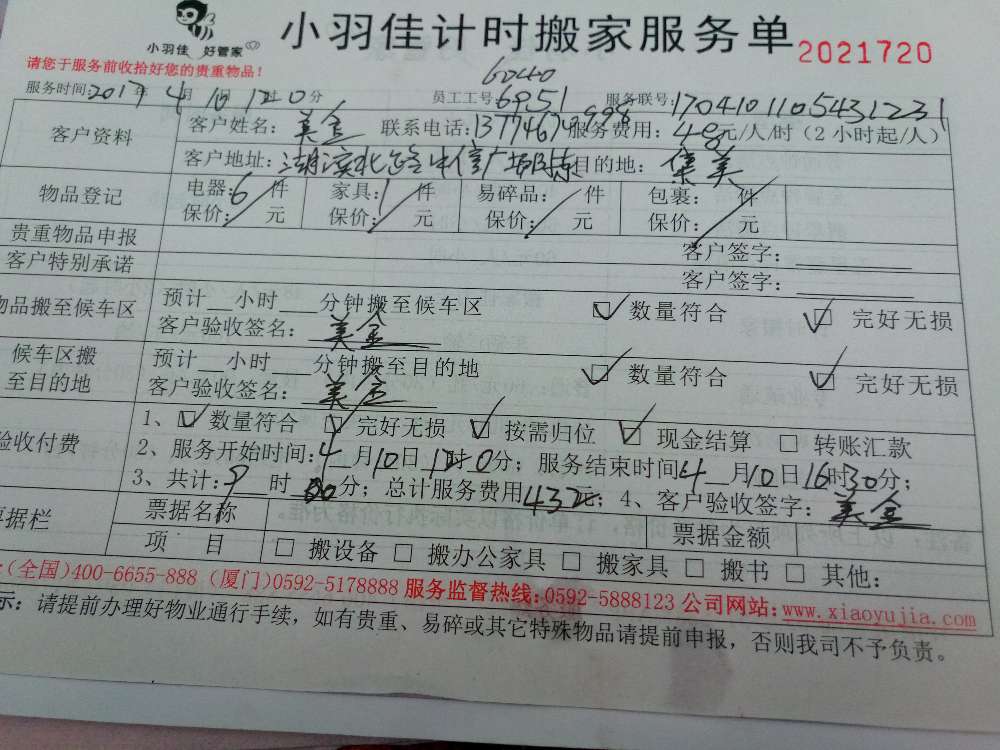 小羽佳 好管家
小羽佳计时搬家服务单 2021720
请您于服务前收拾好您的贵重物品!
6040
服务时间:2017年4月10日12时0分 员工工号:6951 服务联号:17041011054312231
客户资料
客户姓名:美金 联系电话:服务费用:48元/人/时(2小时起/人)
客户地址:湖滨北路中信广场 目的地:集美
物品登记
电器:6件 家具:1件 易碎品: 件 包裹: 件
保价: 元 保价: 元 保价: 元 保价: 元
贵重物品申报 客户签字:
客户特别承诺 客户签字:
物品搬至候车区
预计__小时___分钟搬至候车区 ☑ 数量符合 ☑ 完好无损
客户验收签名:美金
候车区搬至目的地
预计__小时___分钟搬至目的地 ☑ 数量符合 ☑ 完好无损
客户验收签名:美金
验收付费
1、☑ 数量符合 ☑ 完好无损 ☑ 按需归位 ☑ 现金结算 □ 转账汇款
2、服务开始时间:4月10日12时0分;服务结束时间4月10日16时30分;
3、共计:9时00分;总计服务费用432元;4、客户验收签字:美金
票据栏
票据名称 票据金额
项 目 □ 搬设备 □ 搬办公家具 □ 搬家具 □ 搬书 □ 其他:
:(全国)400-6655-888 (厦门)0592-5178888 服务监督热线:0592-5888123 公司网站:www.xiaoyujia.com
示:请提前办理好物业通行手续,如有贵重、易碎或其它特殊物品请提前申报,否则我司不予负责。